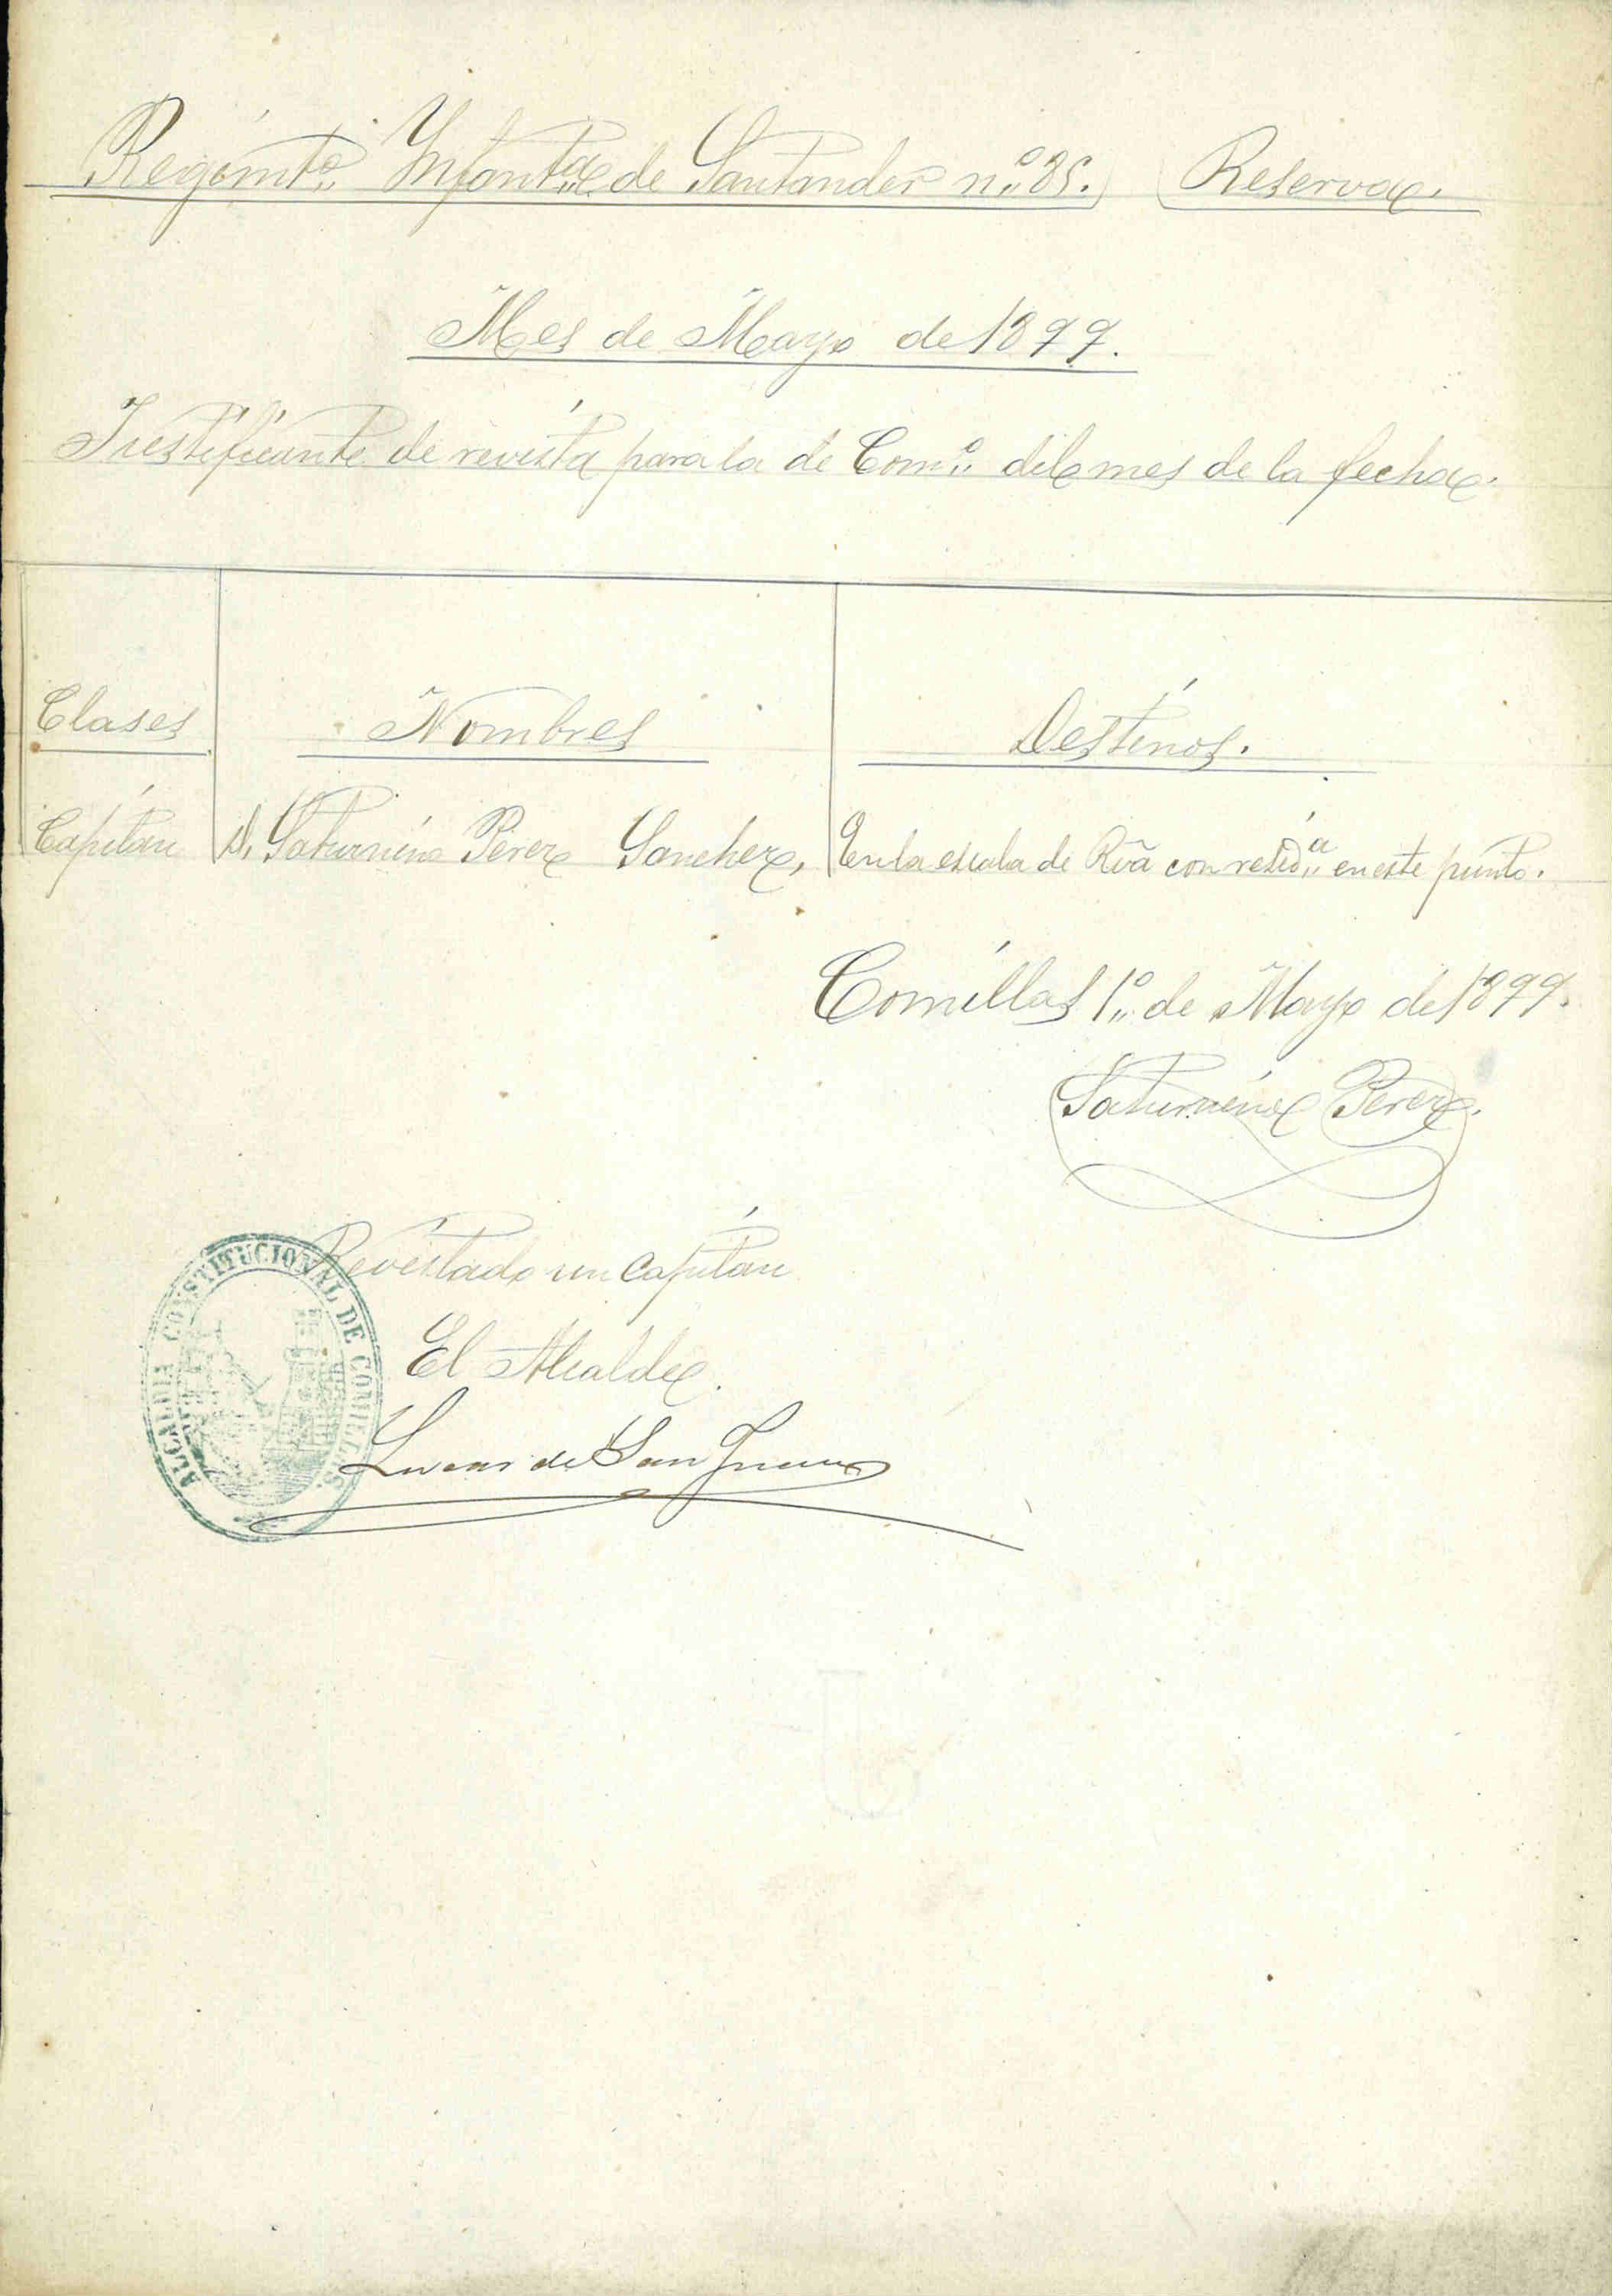 Regimto Infanta de Santander nº 85. Reserva.
Mes de Mayo de 1899.
Justificante de revista para la de Comº del mes de la fecha.
Clases
Nombres
Destinos.
Capitan
D. Saturnino Perez Sanchez,
En la escala de Rva con resida en este punto.
Comillas 1º de Mayo de 1899.
Saturnino Perez.
Revistado un Capitan
El Alcalde.
Lucas de San Juan
ALCALDIA CONSTITUCIONAL DE COMILLAS.